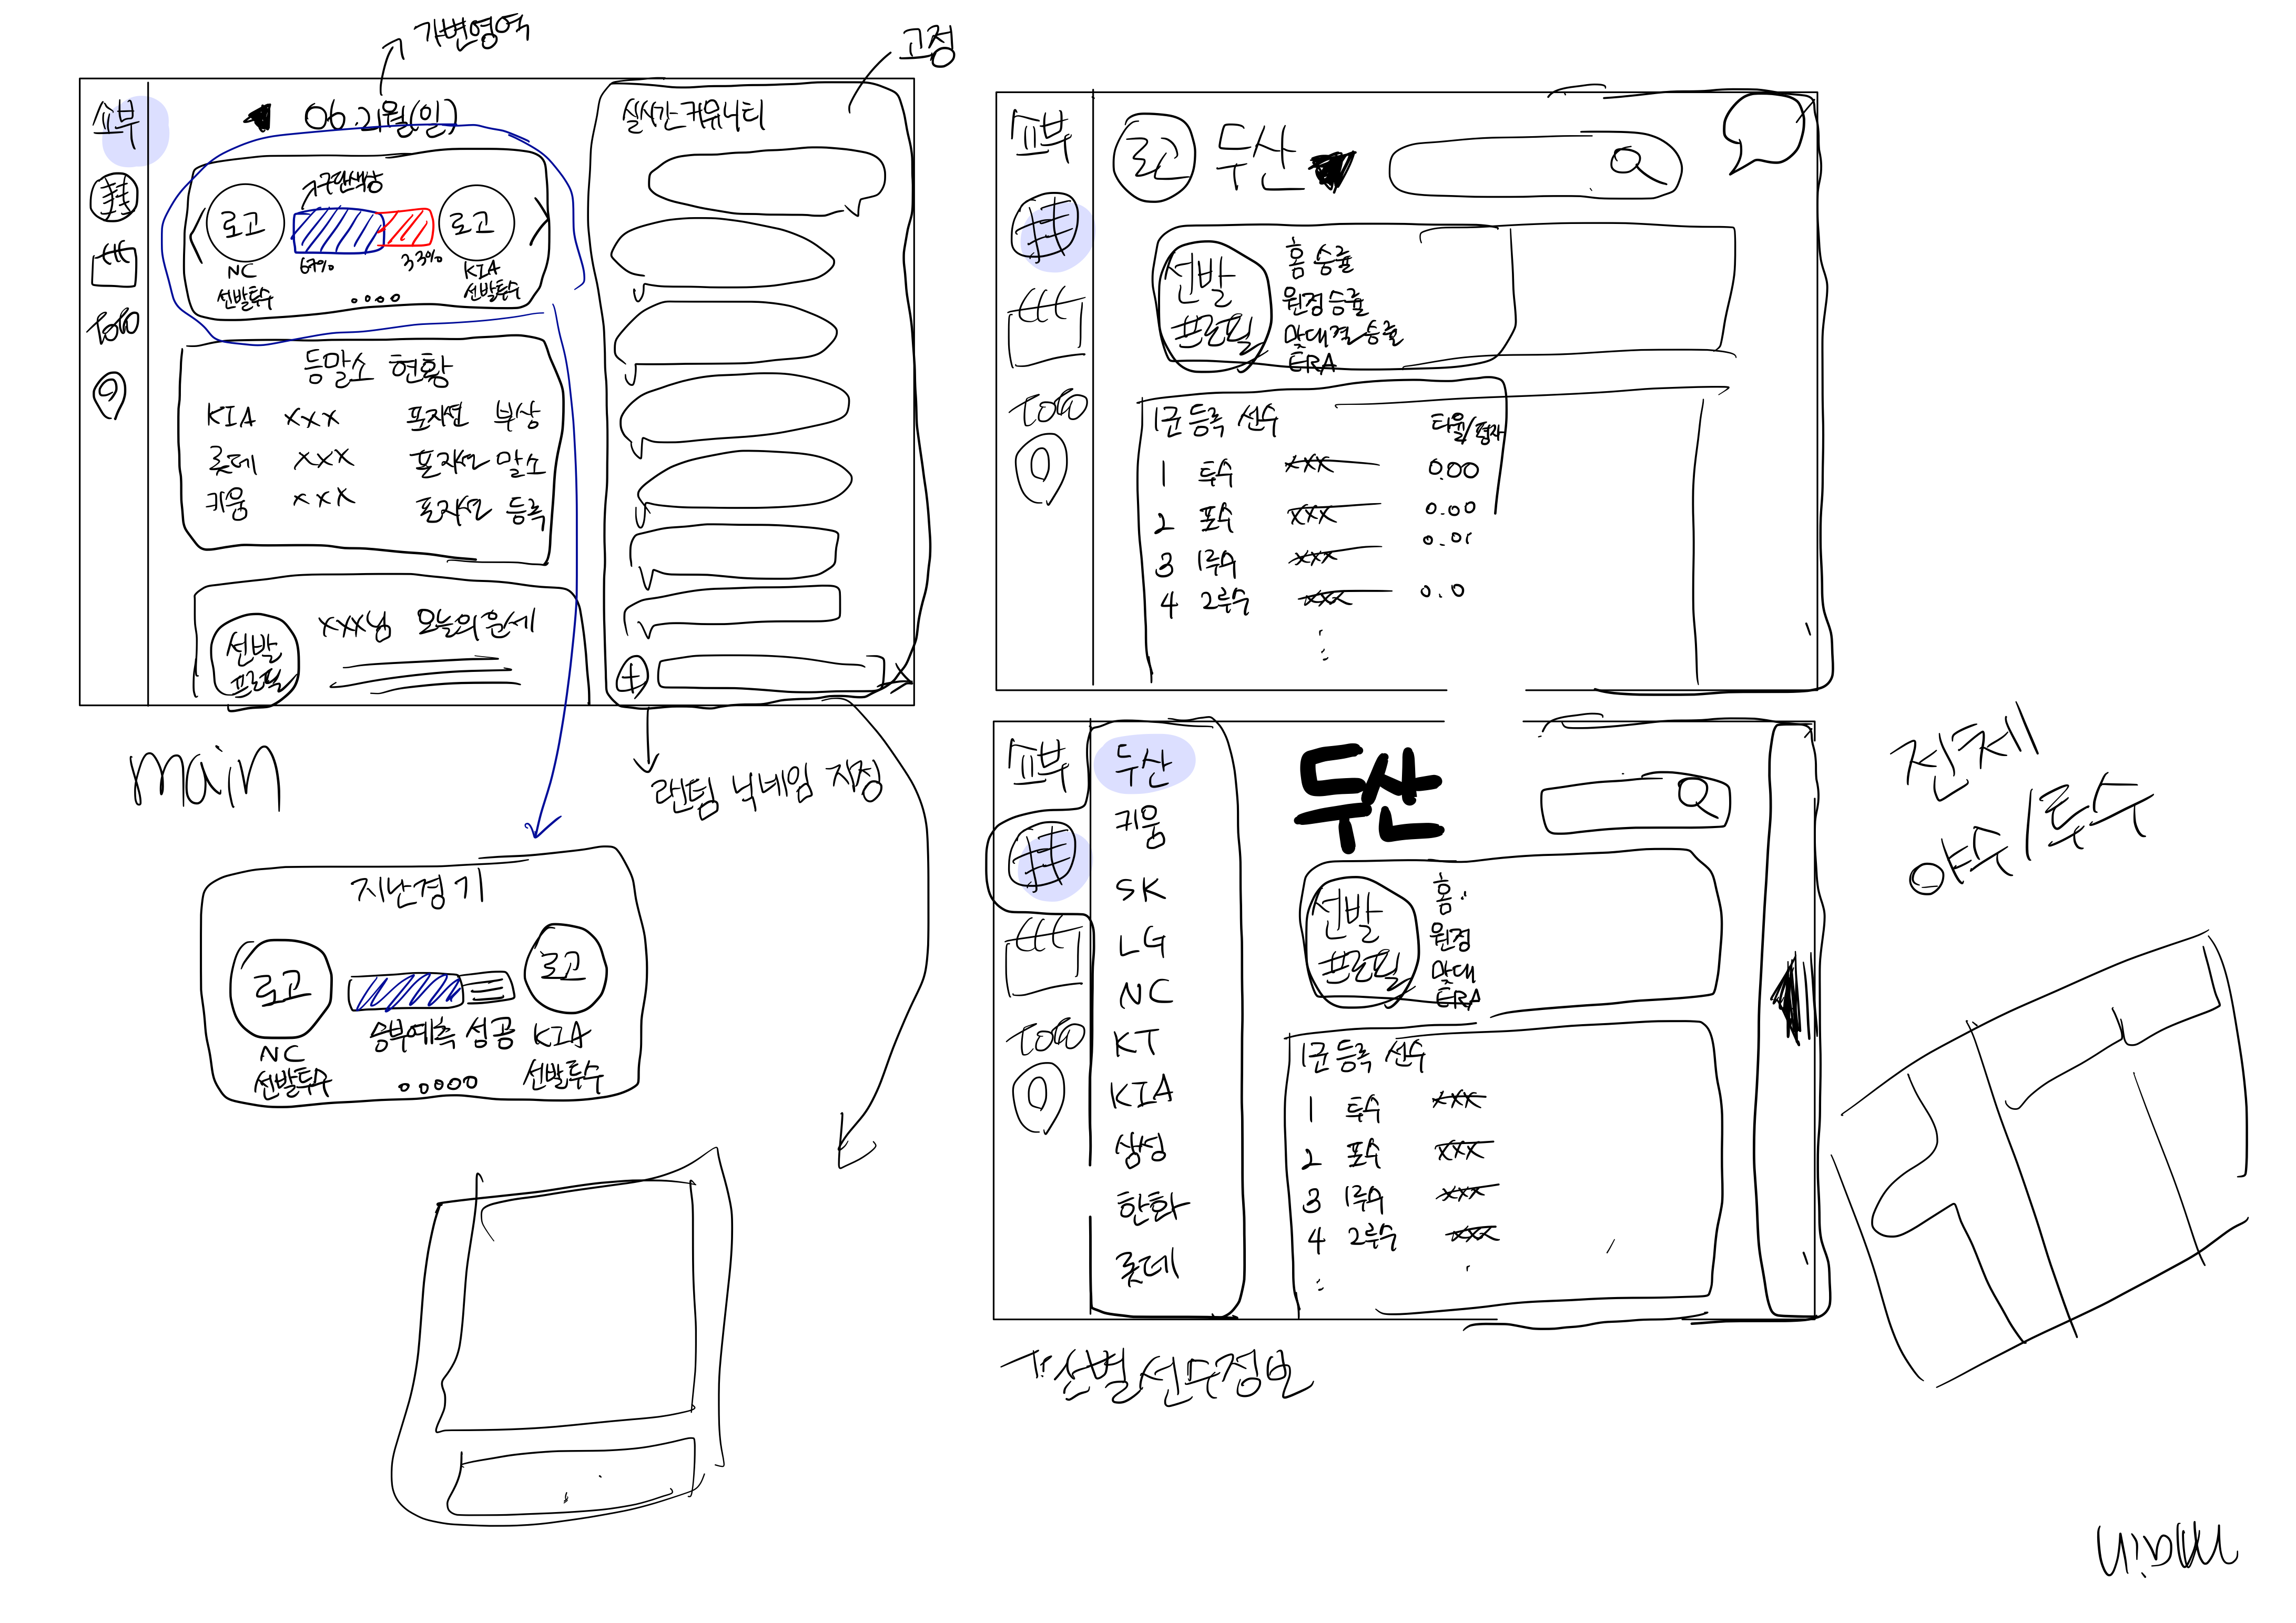 가변영역
고정
쇼부
06.21월(일)
구단색상
로고
로고
67%
33%
NC
선발투수
KIA
선발투수
등말소 현황
KIA xxx 포지션 부상
롯데 xxx 포지션 말소
키움 xxx 포지션 등록
선발
프로필
xxx님 오늘의 운세
toto
실시간 커뮤니티
+
main
랜덤 닉네임 지정
지난경기
로고
로고
승부예측 성공
NC
선발투수
KIA
선발투수
쇼부
로고 두산
선발
프로필
홈 승률
원정승률
맞대결 승률
ERA
toto
1군 등록 선수
1 투수 xxx 0.00
2 포수 xxx 0.00
3 1루수 xxx
4 2루수 xxx 0.0
쇼부
toto
두산
키움
SK
LG
NC
KT
KIA
삼성
한화
롯데
두산
선발
프로필
홈
원정
맞대
ERA
1군 등록 선수
1 투수 xxx
2 포수 xxx
3 1루수 xxx
4 2루수 xxx
구단별 선수정보
전체
야수/투수